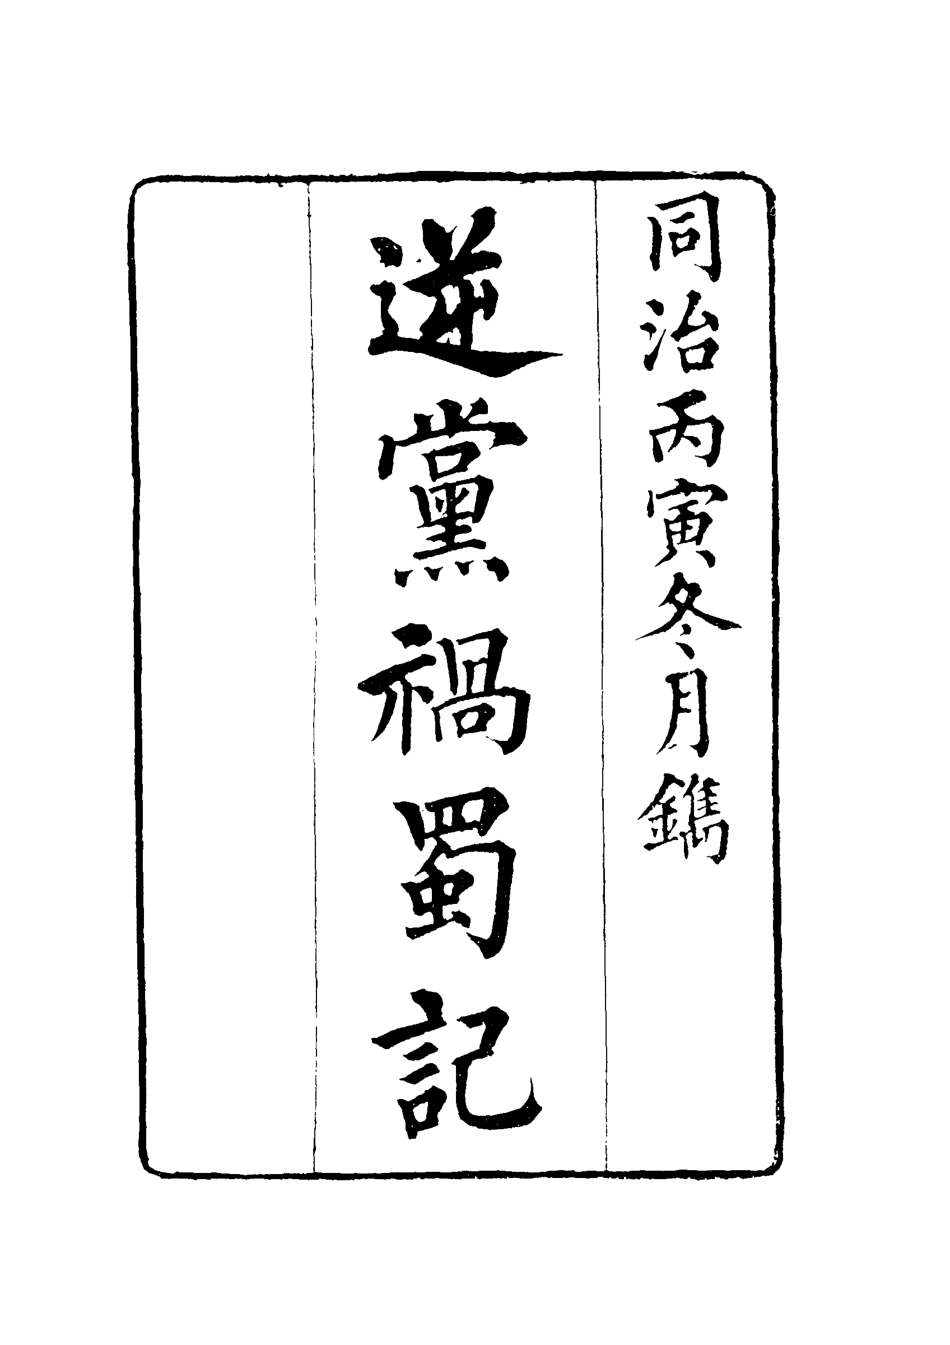 同治丙寅冬月鐫
逆黨禍蜀記